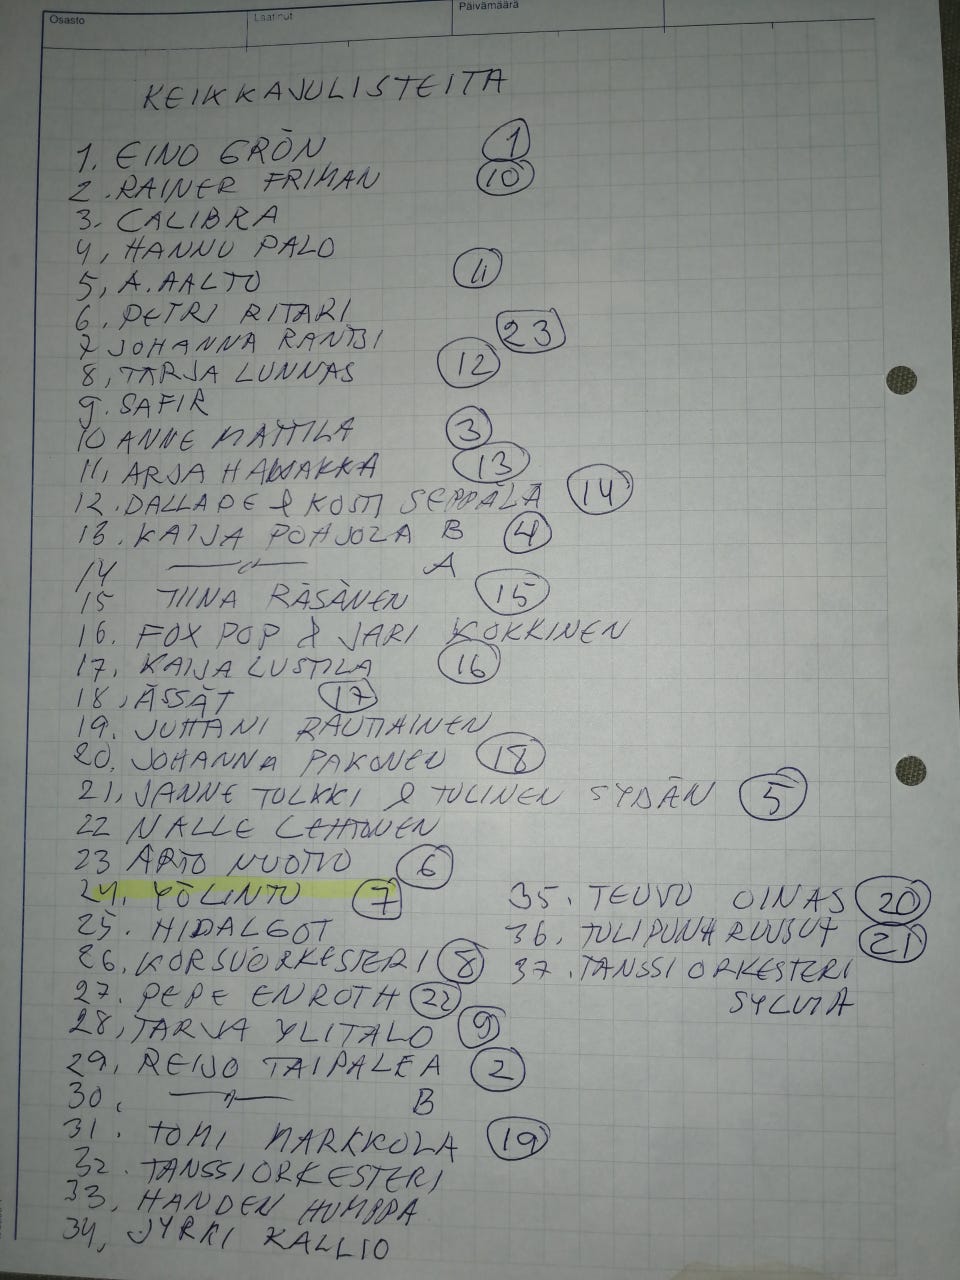 Osasto Laatinut Päivämäärä
KEIKKAJULISTEITA
1. EINO GRÖN 1
2. RAINER FRIMAN 10
3. CALIBRA
4, HANNU PALO
5, A. AALTO 11
6. PETRI RITARI
7 JOHANNA RANTSI 23
8, TARJA LUNNAS 12
9. SAFIR
10 ANNE MATTILA 3
11, ARJA HAVAKKA 13
12. DALLAPE & KOSTI SEPPÄLÄ 14
13. KAIJA POHJOLA B 4
14 —"— A
15 TIINA RÄSÄNEN 15
16. FOX POP & JARI KOKKINEN
17. KAIJA LUSTILA 16
18, ÄSSÄT 17
19. JUHANI RAUTIAINEN
20. JOHANNA PAKONEN 18
21, JANNE TULKKI & TULINEN SYDÄN 5
22 NALLE LEHTONEN
23 ARTO NUOTIO 6
24. YÖLINTU 7
25. HIDALGOT
26. KORSUORKESTERI 8
27. PEPE ENROTH 22
28, TARJA YLITALO 9
29, REIJO TAIPALE A 2
30. —"— B
31. TOMI MARKKOLA 19
32. TANSSIORKESTERI
33. HANDEN HUMPPA
34, JYRKI KALLIO
35. TEUVO OINAS 20
36. TULIPUNARUUSUT 21
37. TANSSIORKESTERI
SYLVIA